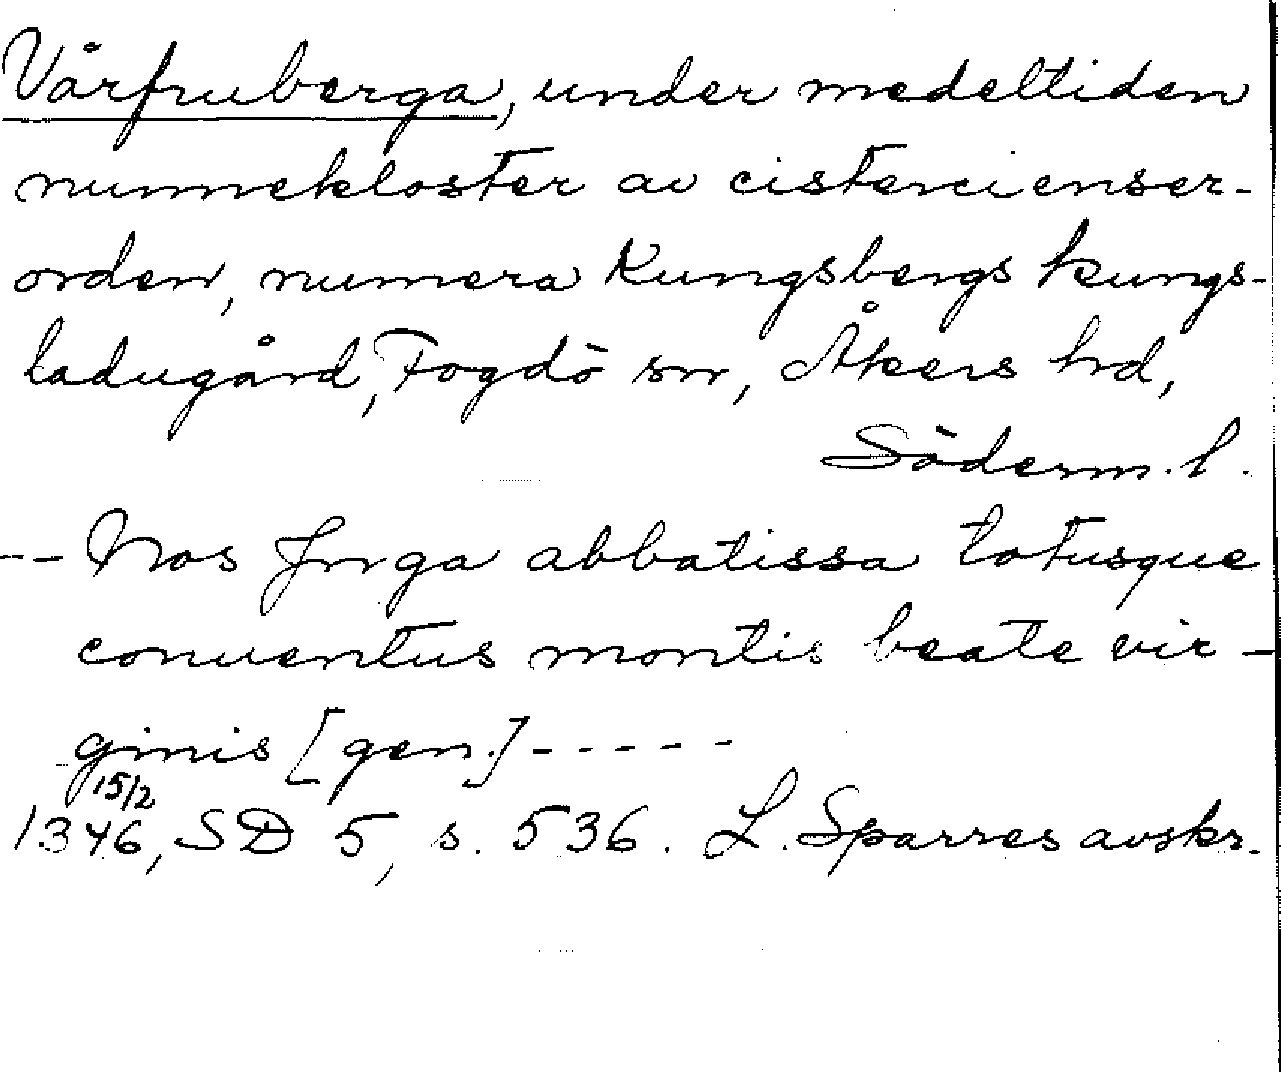 Vårfruberga, under medeltiden
nunnekloster av cistercienser-
orden, numera Kungsbergs kungs-
ladugård, Fogdö sn, Åkers hd,
Söderm. l.
-- Nos Jnga abbatissa totusque
conuentus montis beate vir-
ginis [gen.] -----
15/2
1346, SD 5, s. 536. L. Sparres avskr.